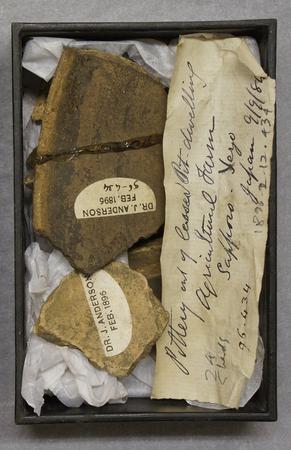 Pottery out of lesser Pit-dwelling
Agricultural Farm
Sapporo. Yezo
Japan 9/9/84
1896-2-12.434
96.434
DR. J. ANDERSON
FEB. 1896
96-4-34
DR. J. ANDERSON
FEB. 1896